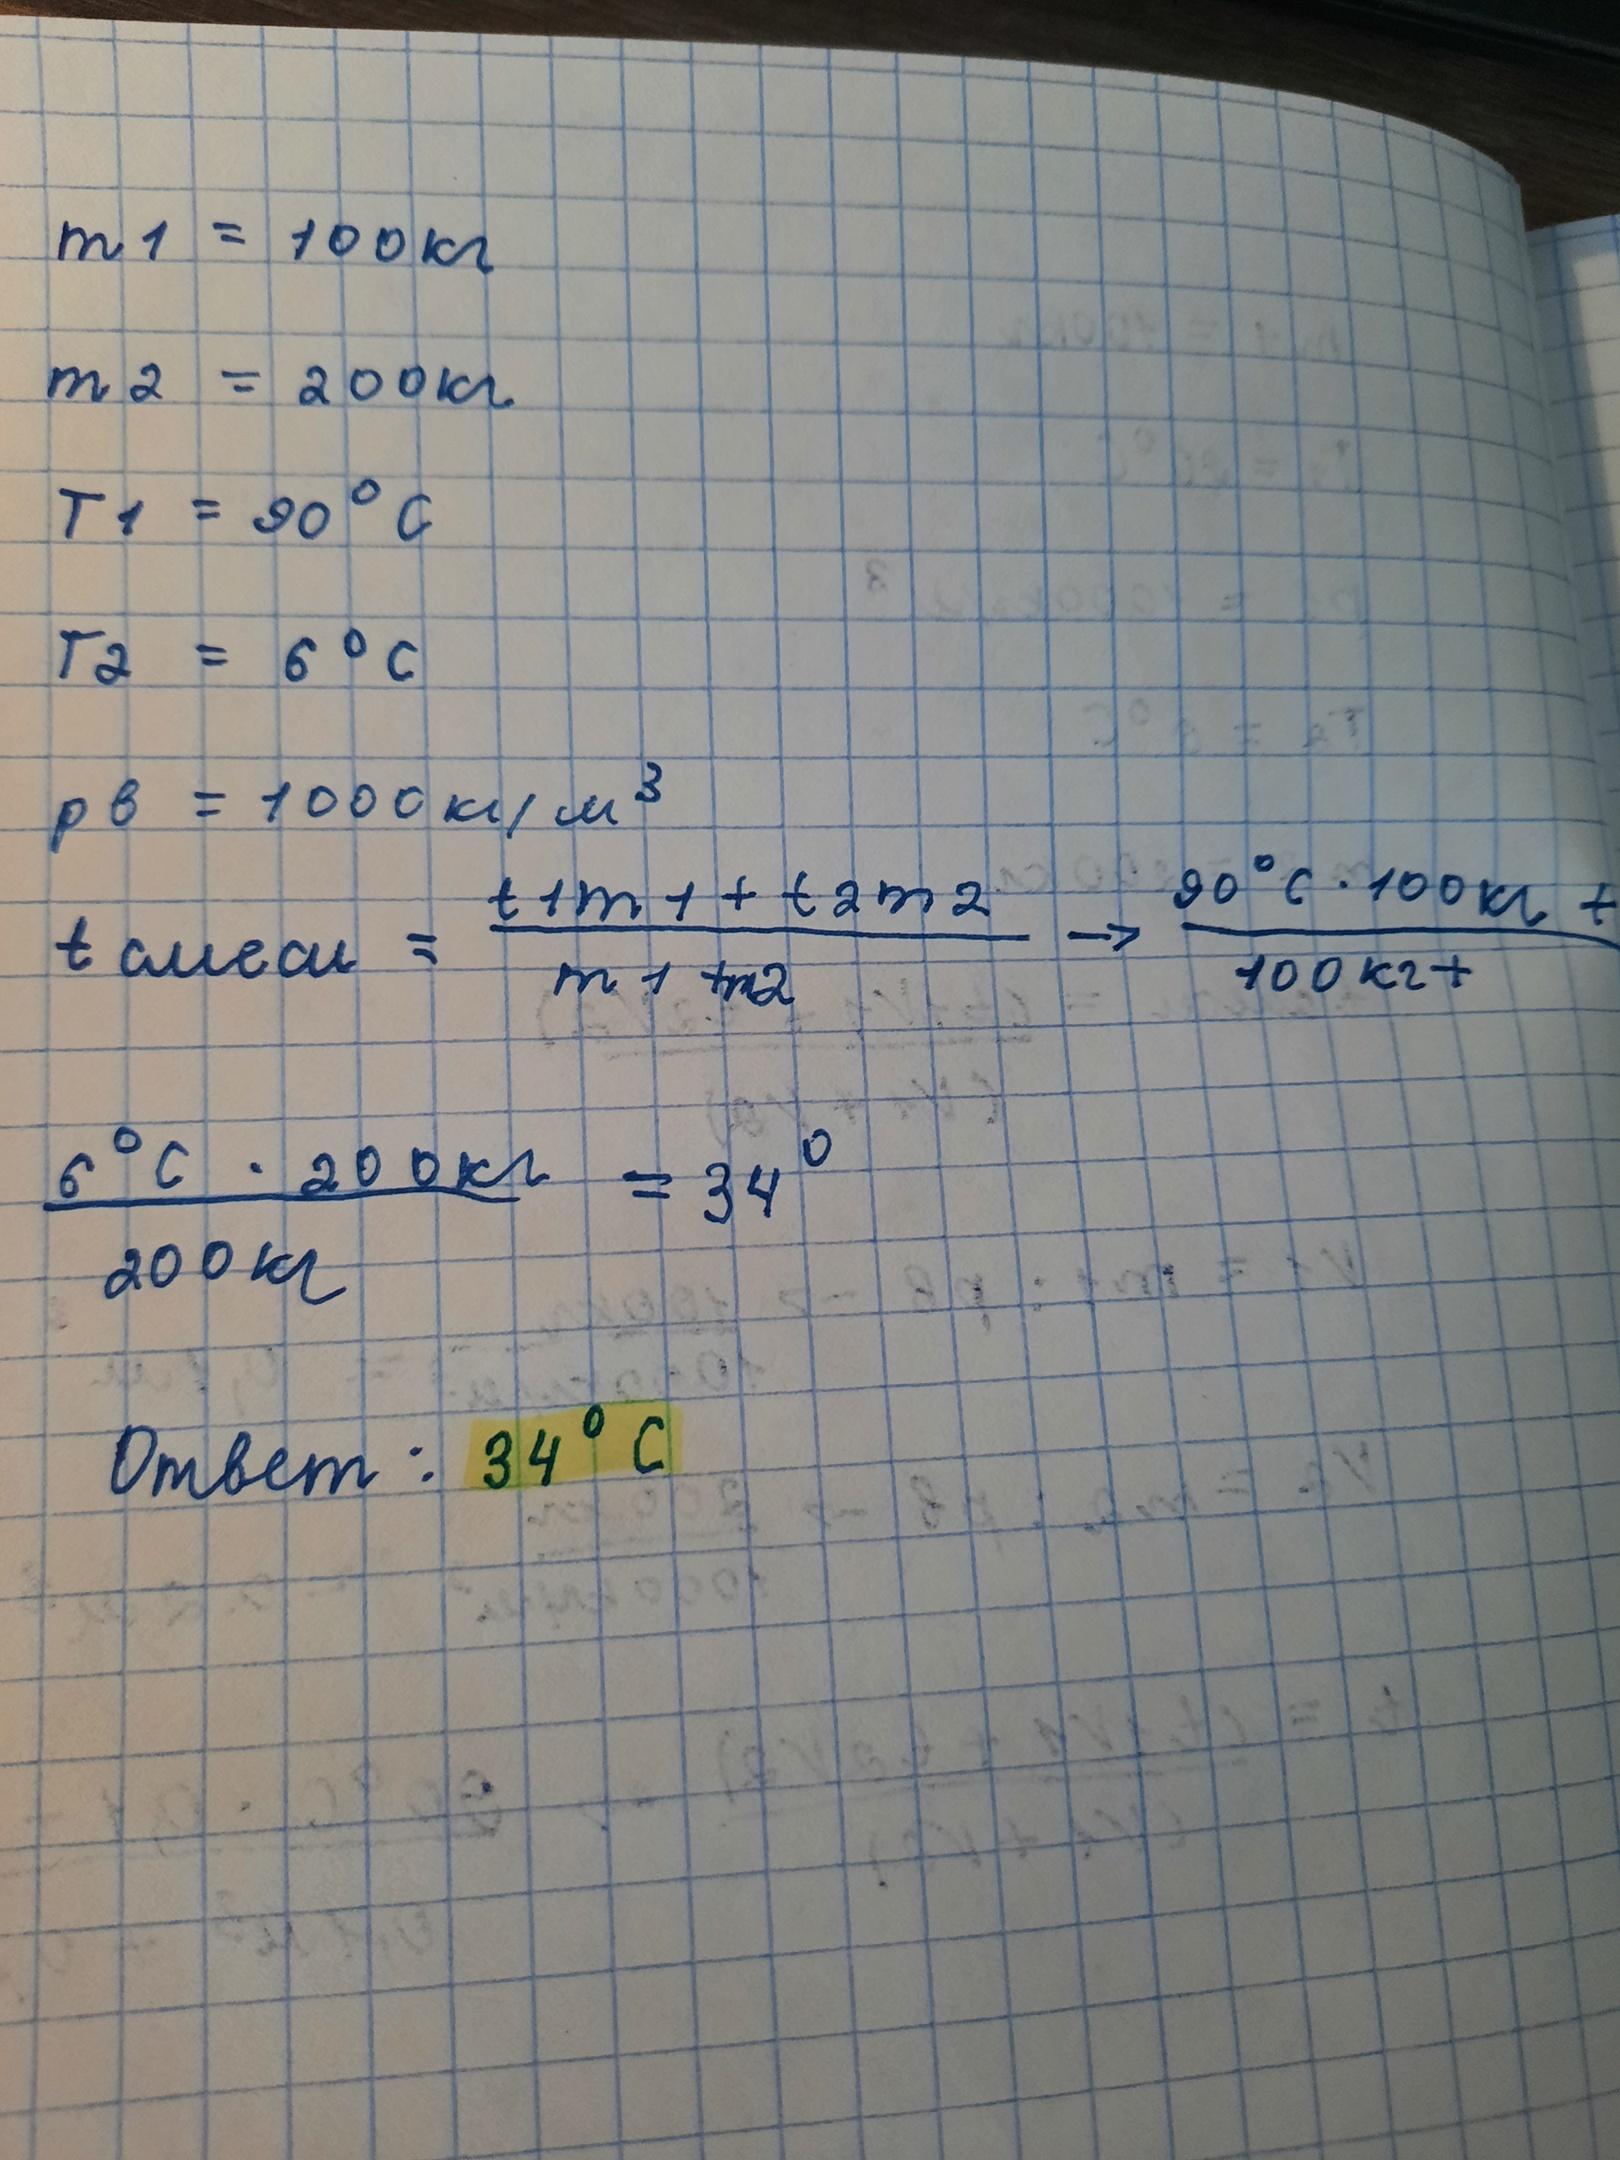 m1 = 100кг
m2 = 200кг
T1 = 90°C
T2 = 6°C
pв = 1000кг/м³
t смеси = t1m1 + t2m2 / m1 + m2 → 90°C · 100кг + / 100кг +
6°C · 200кг / 200кг = 34°
Ответ: 34°C